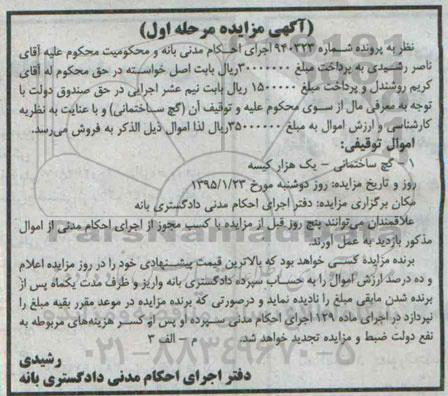 (آگهی مزایده مرحله اول)
نظر به پرونده شماره ۹۴۰۳۲۳ اجرای احکام مدنی بانه و محکومیت محکوم علیه آقای
ناصر رشیدی به پرداخت مبلغ ۳۰۰۰۰۰۰۰ریال بابت اصل خواسته در حق محکوم له آقای
کریم روشندل و پرداخت مبلغ ۱۵۰۰۰۰۰ ریال بابت نیم عشر اجرایی در حق صندوق دولت با
توجه به معرفی مال از سوی محکوم علیه و توقیف آن (گچ ساختمانی) و با عنایت به نظریه
کارشناسی و ارزش اموال به مبلغ ۳۵۰۰۰۰۰۰ریال لذا اموال ذیل الذکر به فروش می‌رسد.
اموال توقیفی:
۱- گچ ساختمانی - یک هزار کیسه
روز و تاریخ مزایده: روز دوشنبه مورخ ۱۳۹۵/۱/۲۳
مکان برگزاری مزایده: دفتر اجرای احکام مدنی دادگستری بانه
علاقمندان می‌توانند پنج روز قبل از مزایده با کسب مجوز از اجرای احکام مدنی از اموال
مذکور بازدید به عمل آورند.
برنده مزایده کسی خواهد بود که بالاترین قیمت پیشنهادی خود را در روز مزایده اعلام
و ده درصد ارزش اموال را به حساب سپرده دادگستری بانه واریز و ظرف مدت یکماه پس از
برنده شدن مابقی مبلغ را تادیه نماید و درصورتی که برنده مزایده در موعد مقرر بقیه مبلغ را
نپردازد در اجرای ماده ۱۲۹ اجرای احکام مدنی سپرده او پس از کسر هزینه‌های مربوطه به
نفع دولت ضبط و مزایده تجدید خواهد شد. م - الف ۳
رشیدی
دفتر اجرای احکام مدنی دادگستری بانه
ParsNamadData
۰۲۱-۸۸۳۴۹۶۷۰-۵